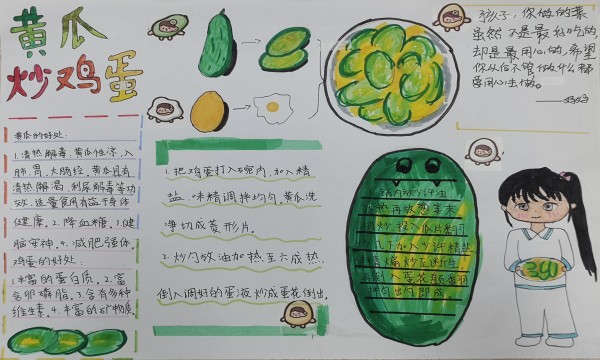 黄瓜
炒鸡蛋
黄瓜的好处:
1.清热解毒,黄瓜性凉,入
肺、胃、大肠经,黄瓜具有
清热解渴,利尿解毒等功
效,适量食用有益于身体
健康。2.降血糖。3.健
脑安神。4.减肥强体
鸡蛋的好处:
1.丰富的蛋白质。2.富
含卵磷脂。3.含有多种
维生素。4.丰富的矿物质。
1.把鸡蛋打入碗内,加入精
盐、味精调拌均匀,黄瓜洗
净切成菱形片。
2.炒勺放油加热至六成热,
倒入调好的蛋液炒成蛋花倒出。
锅内放少许油
加热再放葱姜末
炒 投入瓜片翻
几下加入少许精盐
炒至断生
倒入蛋花
出勺即成。
孩子,你做的菜
虽然不是最好吃的,
却是最用心的,希望
你从后不管做什么都
要用心去做。
——妈妈